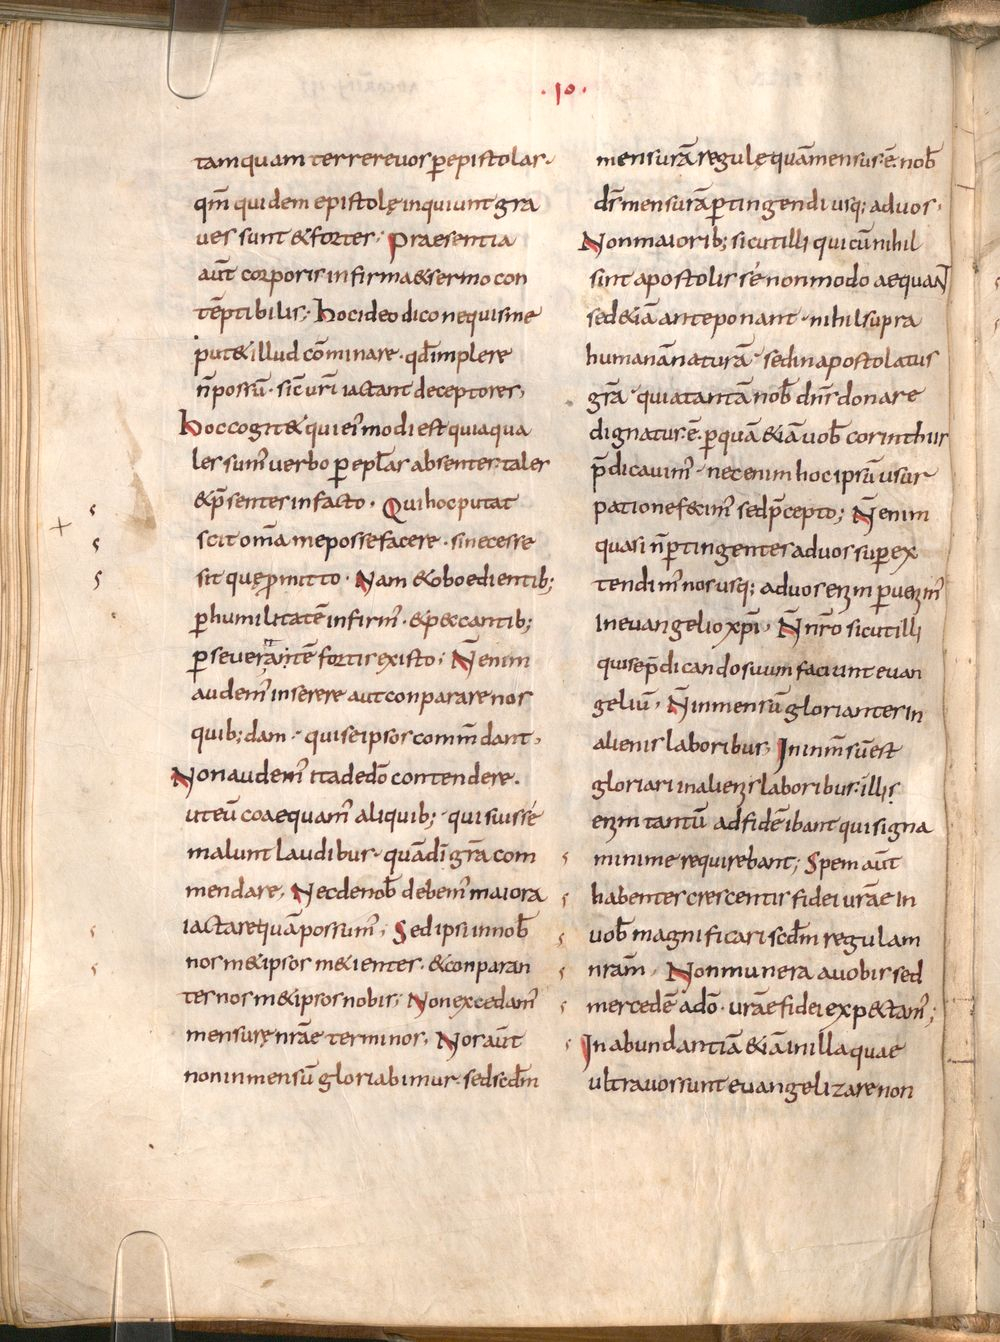 ·10·
tamquam terrere uos ꝑ epistolas·
qm̄ quidem epistolę inquiunt gra
ues sunt & fortes· Praesentia
aūt corporis infirma & sermo con
tēptibilis; Hoc ideo dico nequis me
put& illud cōminare· qd̄ implere
n̄ possū· sic̄ urī iactant deceptores,
Hoc cogit& qui eī'modi est quia qua
les sum' uerbo ꝑ epl̄as absentes· tales
& p̄sentes in facto· Qui hoc putat
scit om̄a me posse facere· si necesse
sit quę ꝑmitto· Nam & oboedientib;
ꝑ humilitatē infirm'· & peccantib;
ꝑseuerantē fortis existo; N̄ enim
audem' inserere aut conparare nos
quib;dam· qui seipsos comm̄dant,
Non audem' ita dedō contendere·
ut eū coaequam' aliquib; qui suis sē
malunt laudibus· quā dī grā com
mendare; Nec de nob̄ debem' maiora
iactare quā possum'; Sed ipsi in nob̄
nos m&ipsos m&ientes· & conparan
tes nosm&ipsos nobis; Non excedam'
mensurę nrāe terminos; Nos aūt
non in mensū gloriabimur· sed scdm̄
mensurā regulę quā mensus ē· nob̄
dr̄ mensurā ꝑtingendi usq; ad uos·
Non maiorib; sicut illi qui cū nihil
sint apostolis sē non modo aequanT
sed & iā anteponant· nihil supra
humanā naturā· sed in apostolatus
grā· quia tantā nob̄ dn̄s donare
dignatus ē· ꝑ quā & iā uob̄ corinthiis
p̄dicauim'· nec enim hoc ipsū usur
patione fecim' sed p̄cepto; N̄ enim
quasi n̄ ꝑtingentes ad uos superex
tendim' nos usq; ad uos enim ꝑuenim'
In euangelio xp̄i; N̄ nr̄o sicut illi
qui se p̄dicando suum faciunt euan
geliū; N̄ in mensū gloriantes In
alienis laboribus; In inm̄sū est
gloriari in alienis laboribus· illis
enim tantū ad fidē ibant qui signa
minime requirebant; Spem aūt
habentes crescentis fidei urāe In
uob̄ magnificari scdm̄ regulam
nrām; Non munera a uobis sed
mercedē adō· urāe fidei expectam';
In abundantiā & iā in illa quae
ultra uos sunt euangelizare non